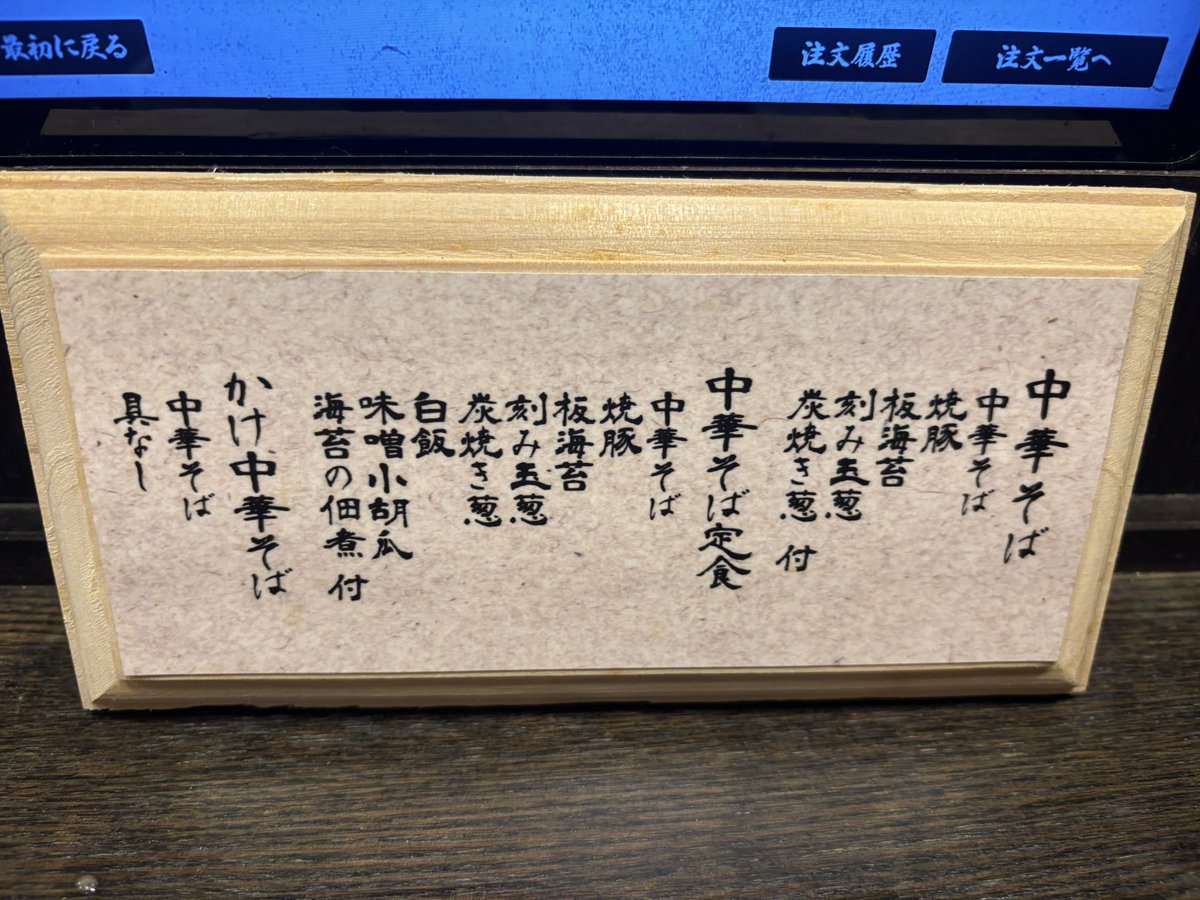 最初に戻る
注文履歴
注文一覧へ
中華そば
中華そば
焼豚
板海苔
刻み玉葱
炭焼き葱 付
中華そば定食
中華そば
焼豚
板海苔
刻み玉葱
炭焼き葱
白飯
味噌小胡瓜
海苔の佃煮 付
かけ中華そば
中華そば
具なし